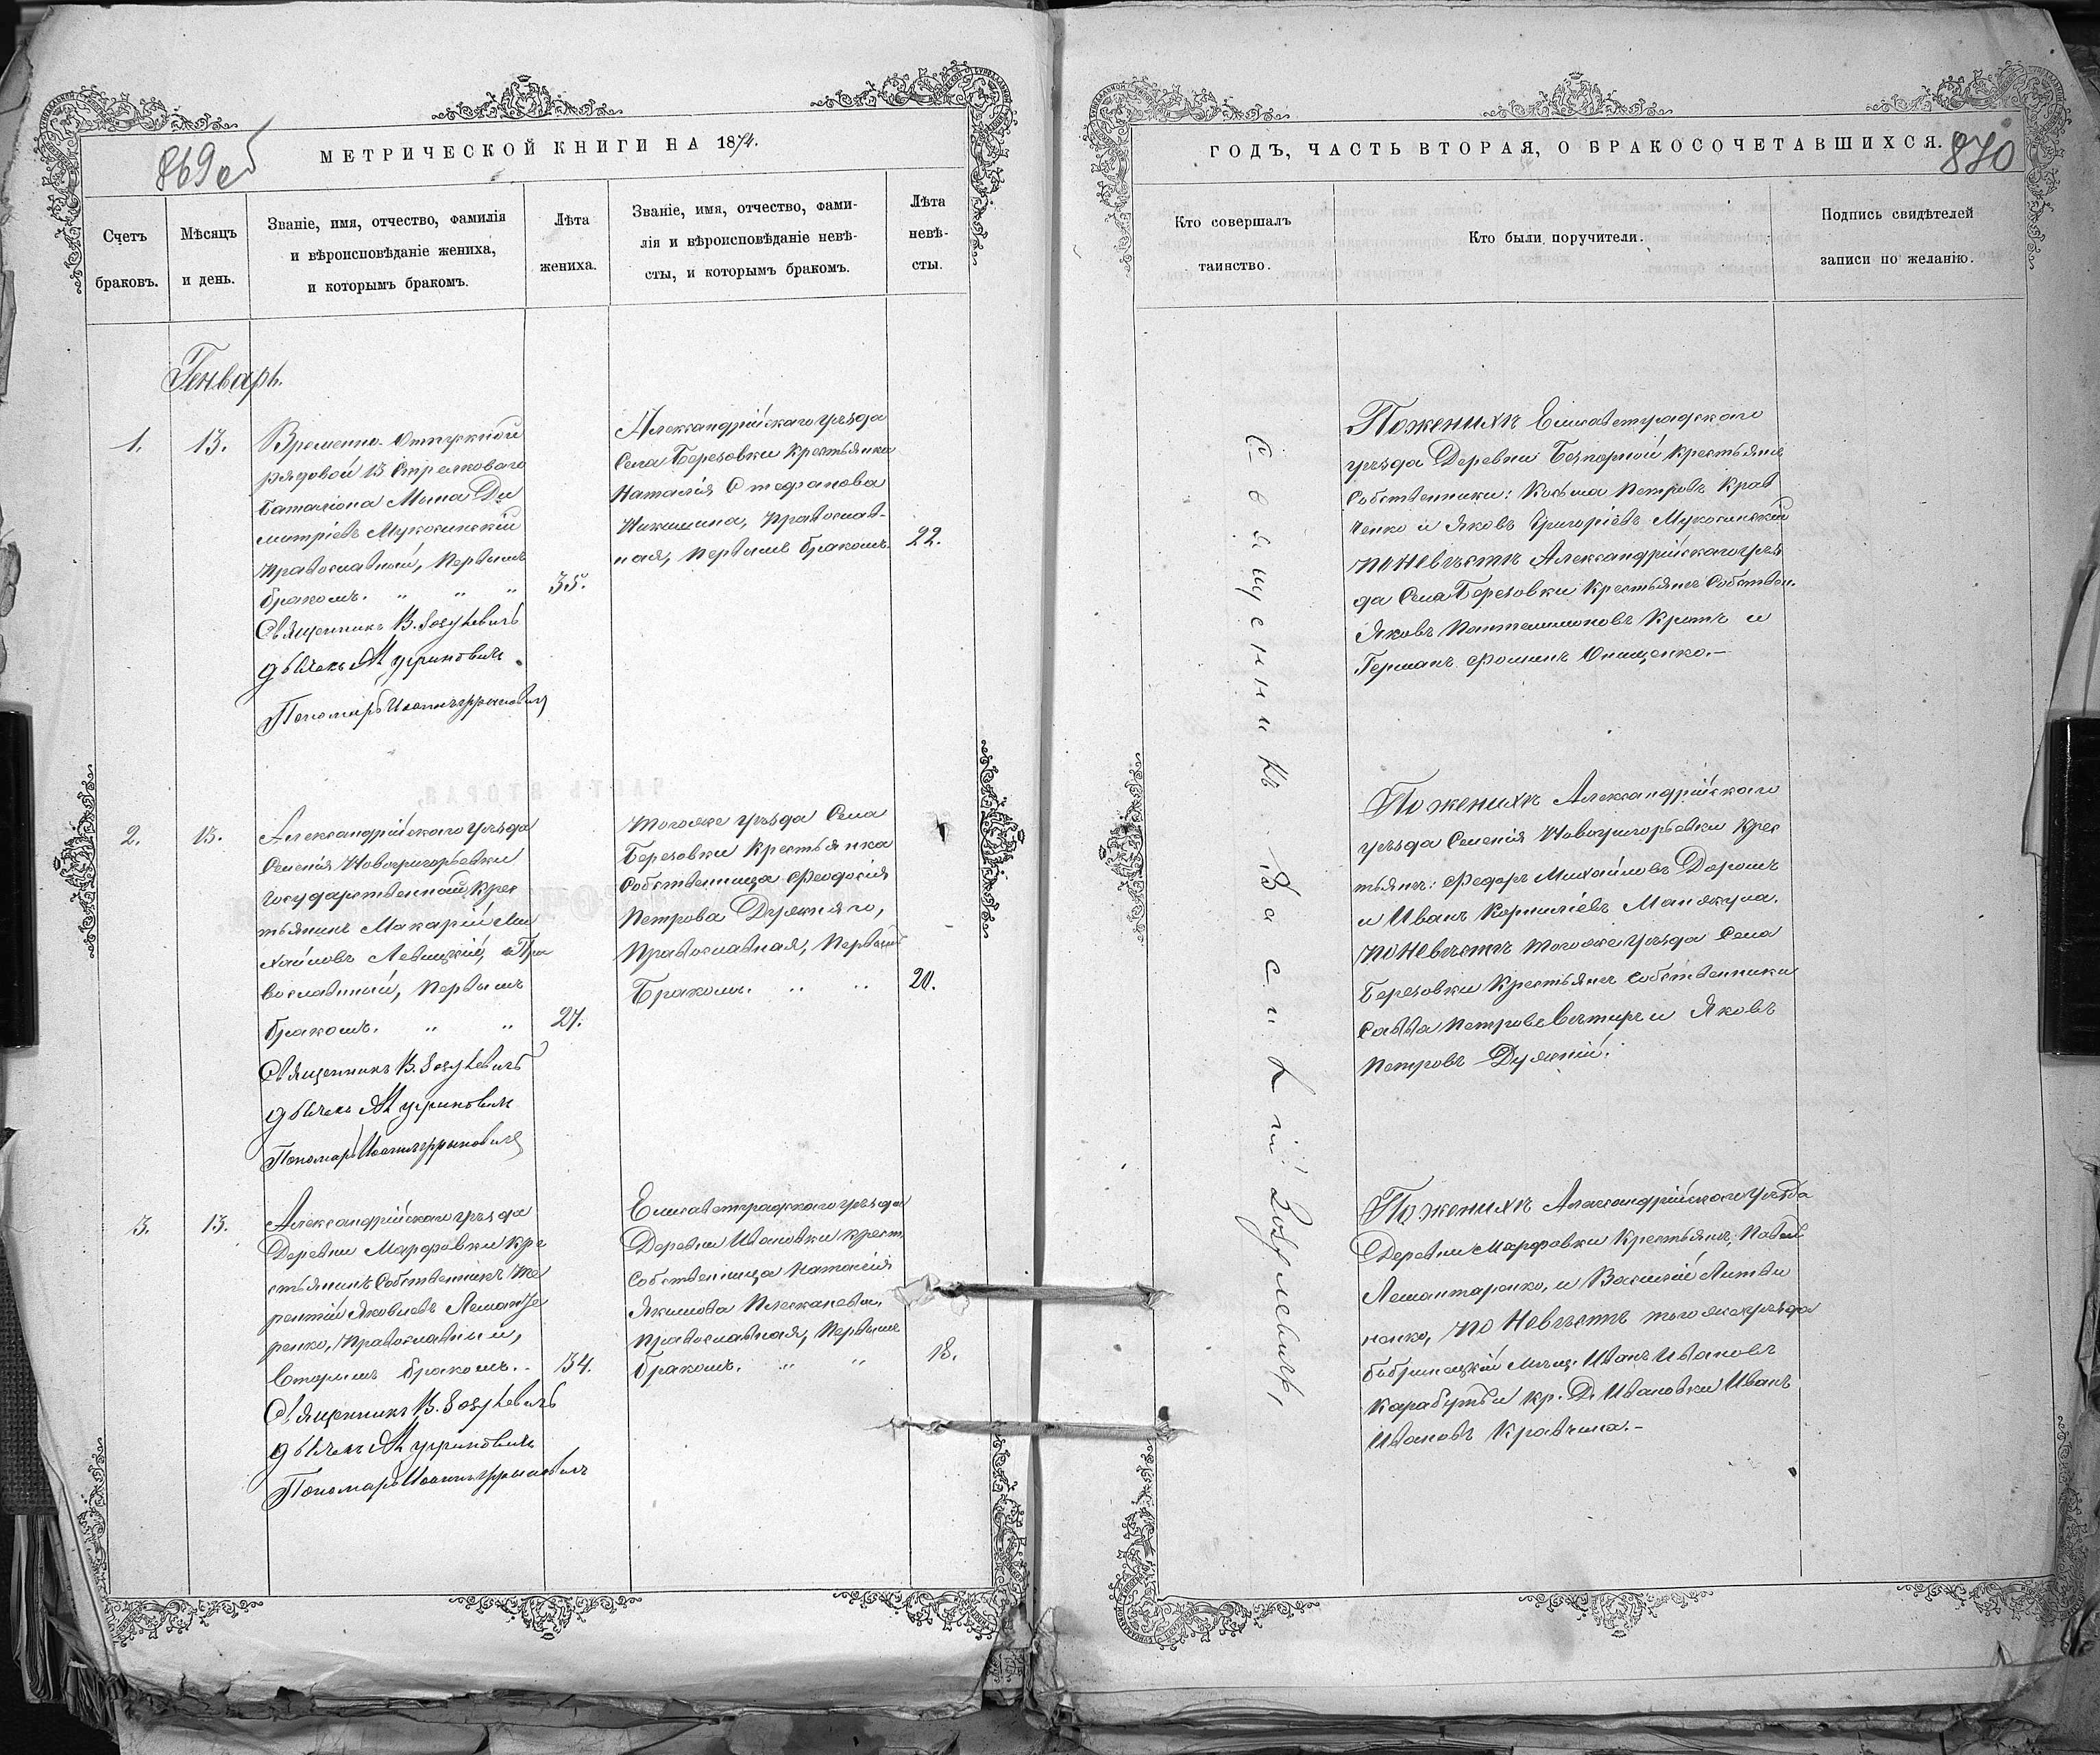 869об
МЕТРИЧЕСКОЙ КНИГИ НА 1874.
Счетъ
браковъ.
Мѣсяцъ
и день.
Званіе, имя, отчество, фамилія
и вѣроисповѣданіе жениха,
и которымъ бракомъ.
Лѣта
жениха.
Званіе, имя, отчество, фами-
лія и вѣроисповѣданіе невѣ-
сты, и которымъ бракомъ.
Лѣта
невѣ-
сты.
Генварь.
1.
13.
Временно-Отпускной
рядовой 13 Стрелковаго
Баталіона Мина Ди
митріевъ Мукосинскій
православный, первымъ
бракомъ. „ „ „
35.
Священникъ В.
Пономарь
Александрійскаго уѣзда
Села Березовки Крестьянка
Наталія Стефанова
Никишина, православ-
ная, первымъ бракомъ.
22.
2.
13.
Александрійскаго уѣзда
Селенія Новогригорьевки
государственный Крес
тьянинъ Макарій Ми
хайловъ Левицкій, Пра
вославный, первымъ
бракомъ. „ „
27.
Священникъ В.
Пономарь
Тогоже уѣзда Села
Березовки Крестьянка
Собственница Феодосія
Петрова Дужняго,
Православная, первымъ
Бракомъ. „ „
20.
3.
13.
Александрійскаго уѣзда
Деревни Марфовки Кре
стьянинъ Собственникъ Те
рентій Яковлевъ Лешанта
ренко, Православный,
вторымъ бракомъ.
34.
Священникъ В.
Пономарь
Елисаветградскаго уѣзда
Деревни Ивановки крест.
Собственница Наталія
Якимова
православная, первымъ
бракомъ. „ „
18.
ГОДЪ, ЧАСТЬ ВТОРАЯ, О БРАКОСОЧЕТАВШИХСЯ.
870
Кто совершалъ
таинство.
Кто были поручители.
Подпись свидѣтелей
записи по желанію.
Священникъ Василій
По женихѣ Елисаветградскаго
уѣзда Деревни Безпорной Крестьяне
Собственники: Косьма Петровъ Крав
ченко и Яковъ Григоріевъ Мукосинскій
по невѣстѣ Александрійскаго уѣз
да Села Березовки Крестьяне Собствен.
Яковъ Пантелимоновъ Кротъ и
Германъ Фоминъ Онищенко.—
По женихѣ Александрійскаго
уѣзда Селенія Новогригорьевки Крес
тьяне: Федоръ Михайловъ Дорошъ
и Иванъ Корниліевъ Манжула.
по невѣстѣ тогоже уѣзда Села
Березовки Крестьяне собственники
Савва Петровъ и Яковъ
Петровъ Дужній.
По женихѣ Александрійскаго уѣзда
Деревни Марфовки Крестьяне: Павелъ
Лешантаренко, и Василій Литви
ненко, по Невѣстѣ тогоже уѣзда
бобринецкій мѣщ. Иванъ Ивановъ
Карабутъ и кр. Д. Ивановки Иванъ
Ивановъ Кравчина.—